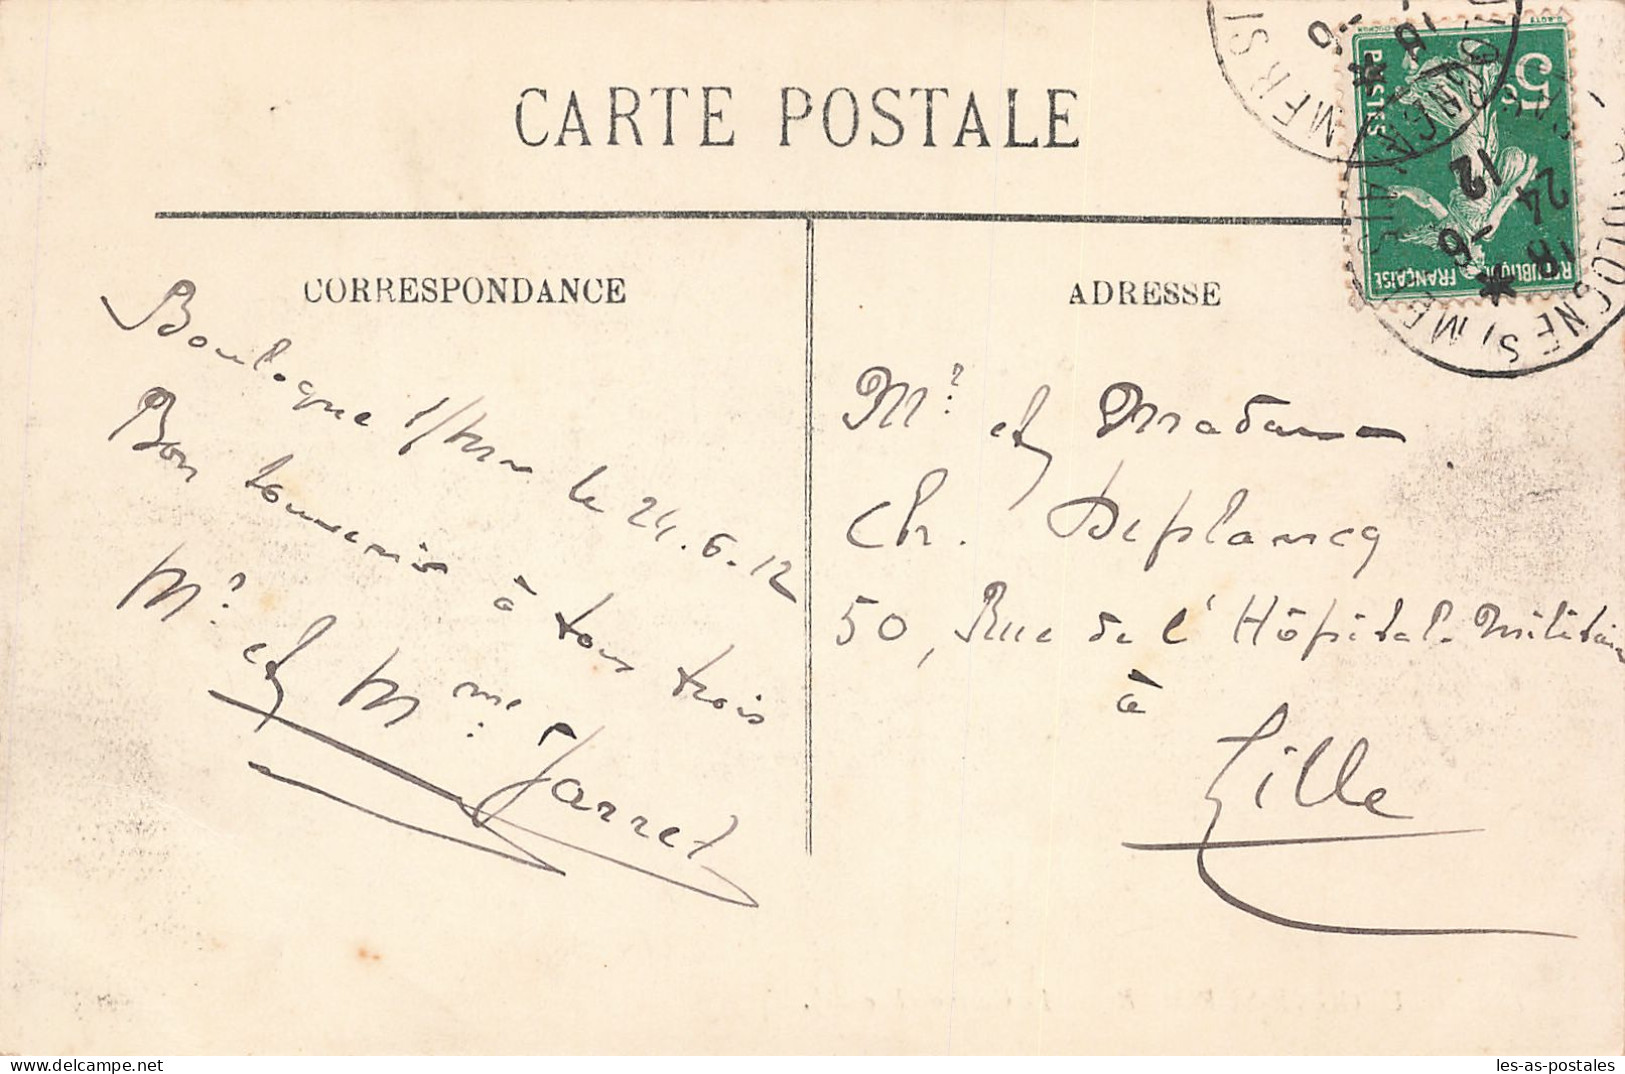 CARTE POSTALE
CORRESPONDANCE
Boulogne s/mer le 24.6.12
Bon souvenir à tous trois
Mr et Mme Jarret
ADRESSE
Mr et Madame
Ch. Deplancq
50, Rue de l'Hôpital Militaire
à
Lille
5c
POSTES
REPUBLIQUE
FRANÇAISE
BOULOGNE S/ MER
18
24
-6
12
delcampe.net
les-as-postales